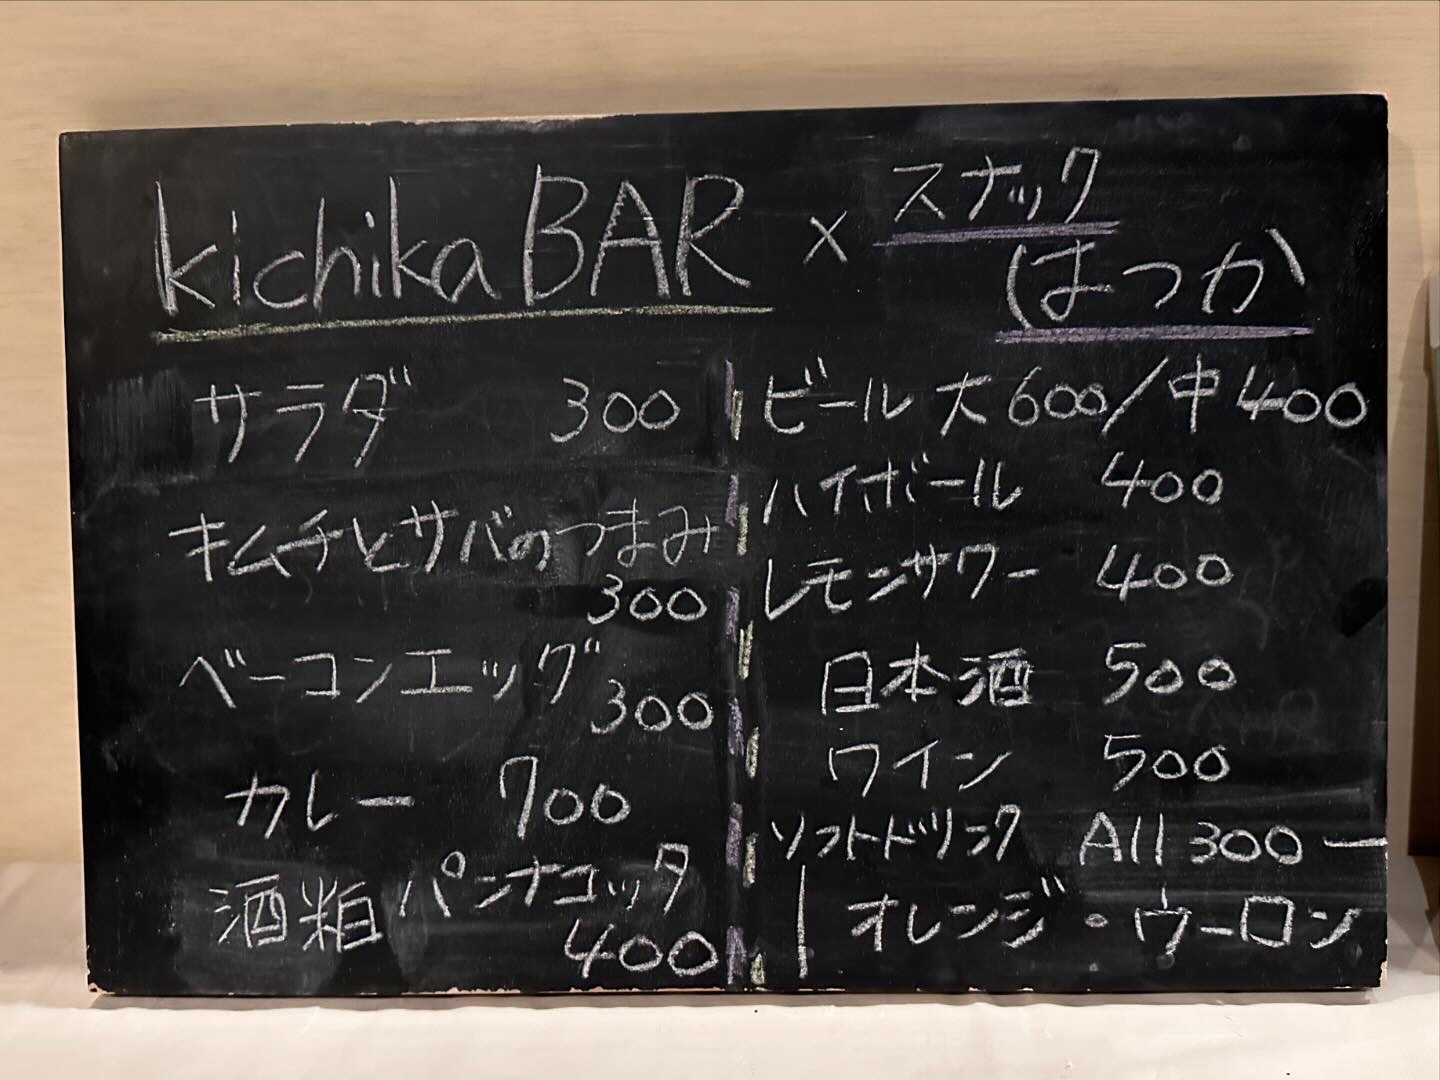 kichika BAR × スナック
はっか
サラダ 300
キムチとサバのつまみ
300
ベーコンエッグ
300
カレー 700
酒粕パンナコッタ
400
ビール 大600/中400
ハイボール 400
レモンサワー 400
日本酒 500
ワイン 500
ソフトドリンク All 300ー
オレンジ・ウーロン